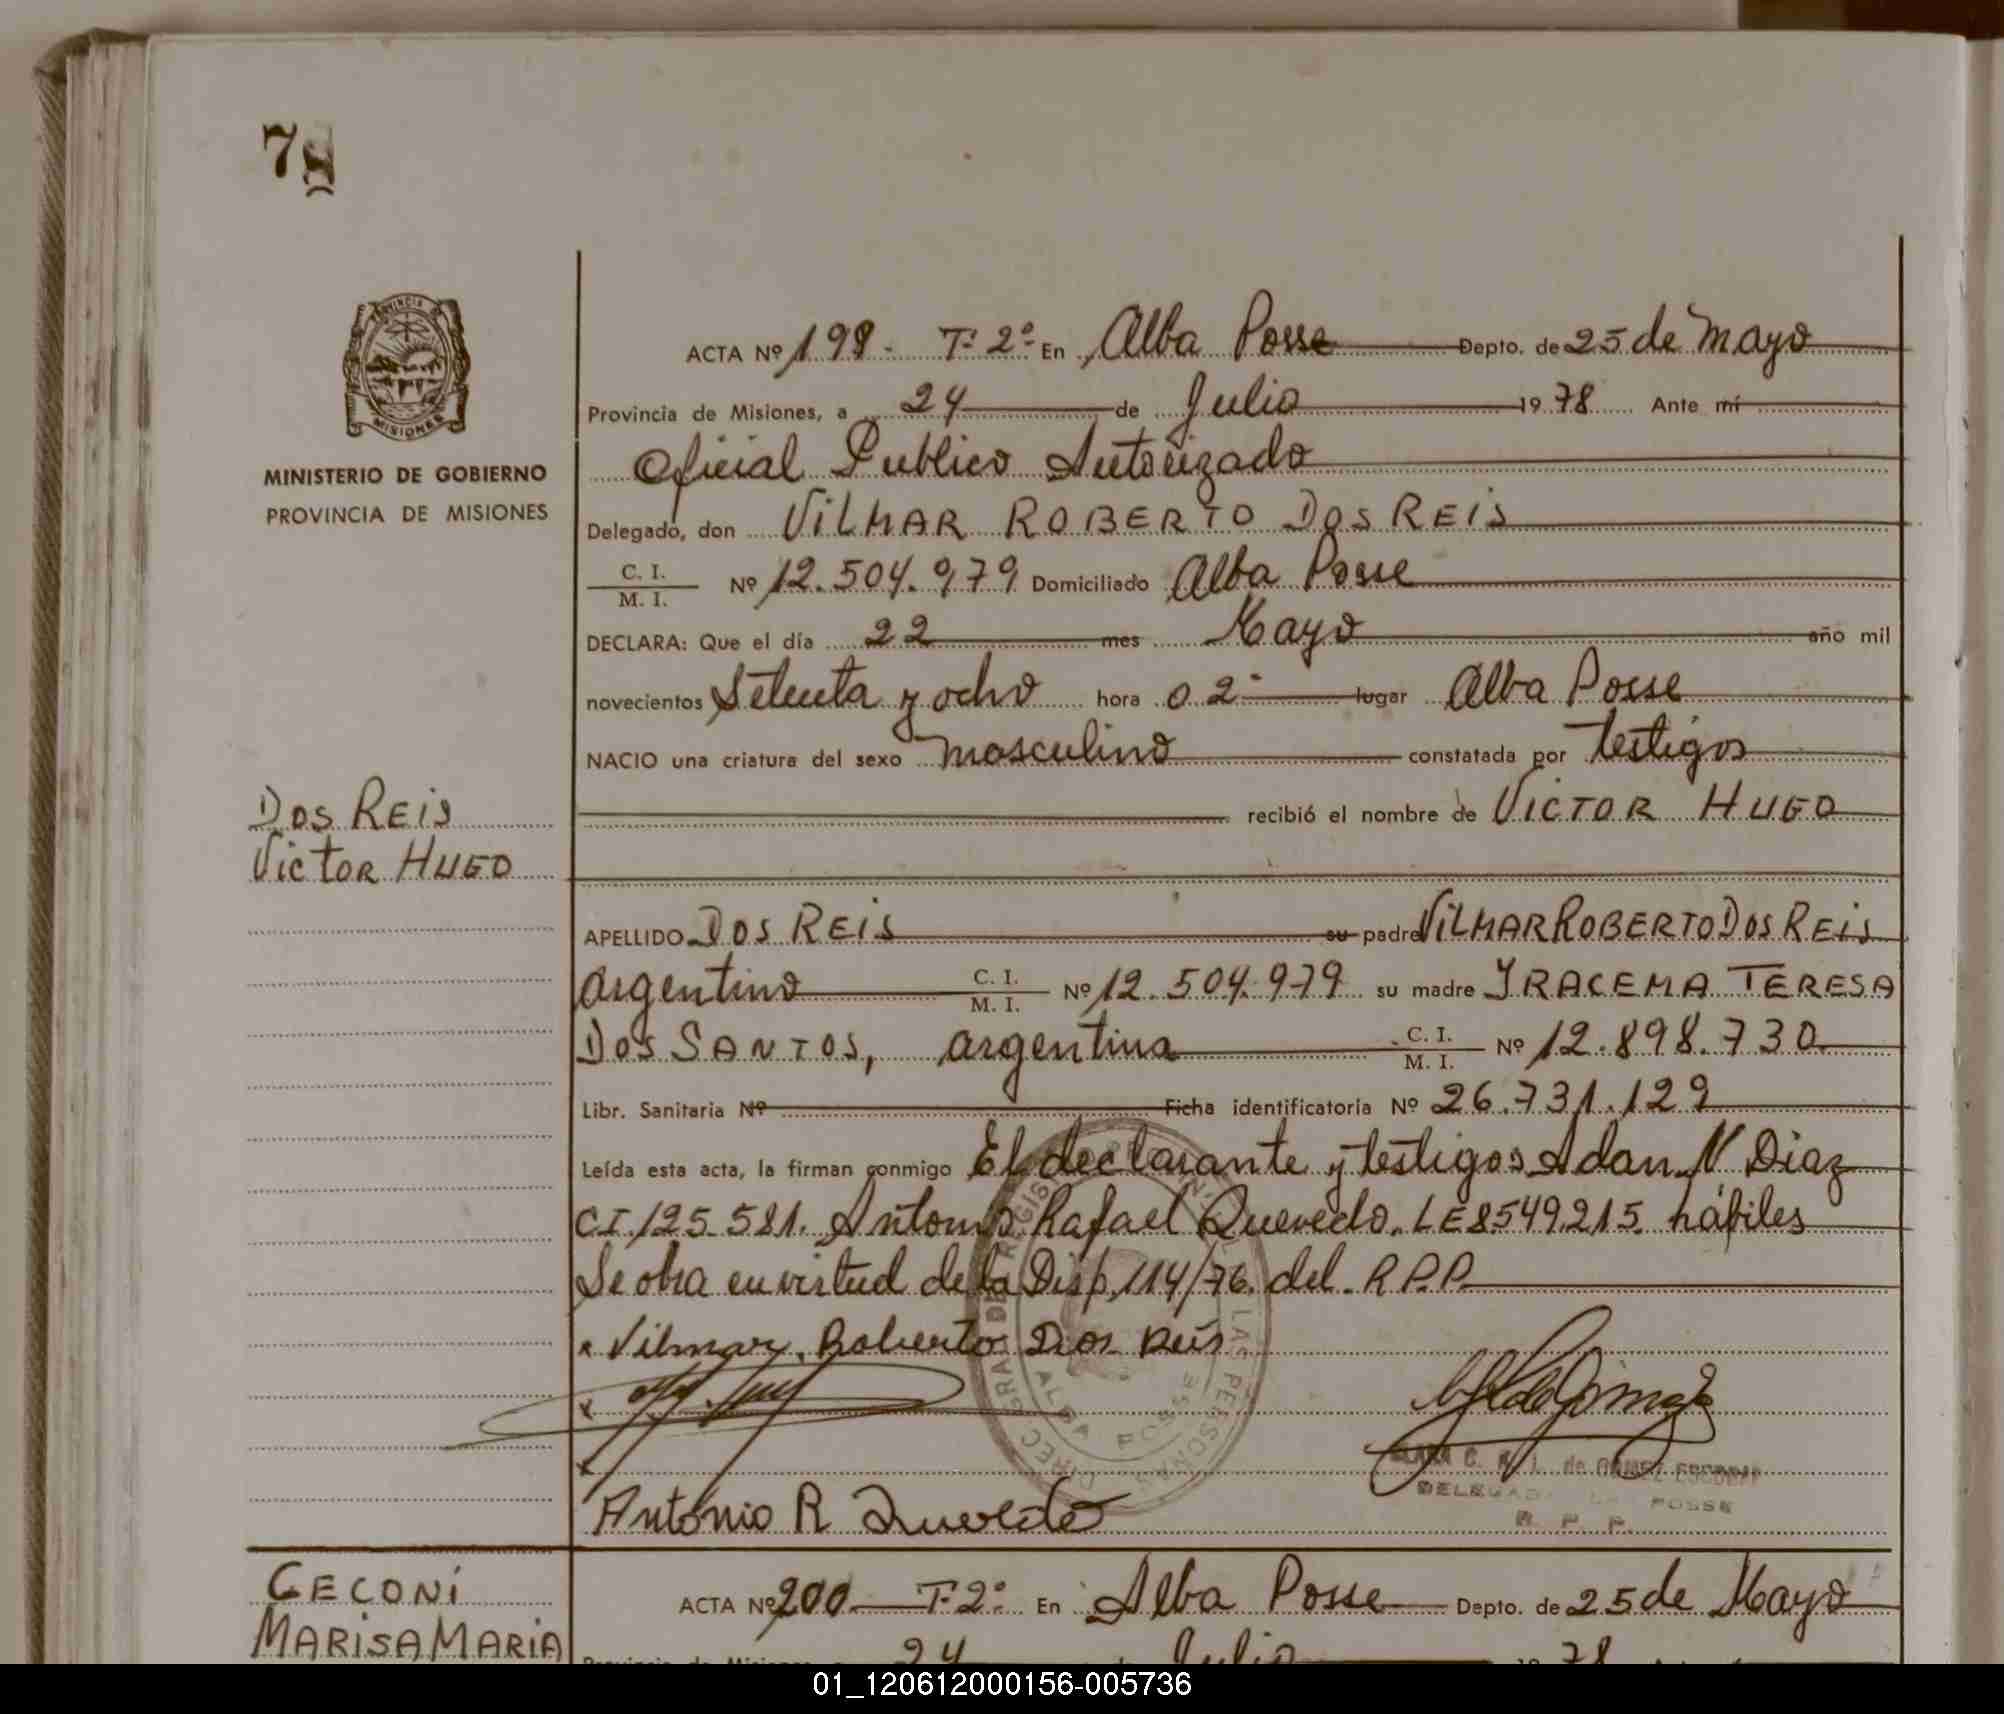 7
PROVINCIA
MISIONES
MINISTERIO DE GOBIERNO
PROVINCIA DE MISIONES
ACTA Nº 199. Tº 2º En Alba Posse Depto. de 25 de Mayo
Provincia de Misiones, a 24 de Julio 19 78 Ante mí
Oficial Publico Autorizado
Delegado, don VILMAR ROBERTO DOS REIS
C. I.
M. I. Nº 12.504.979 Domiciliado Alba Posse
DECLARA: Que el día 22 mes Mayo año mil
novecientos Setenta y ocho hora 02 lugar Alba Posse
NACIO una criatura del sexo masculino constatada por testigos
recibió el nombre de VICTOR HUGO
DOS REIS
VICTOR HUGO
APELLIDO DOS REIS su padre VILMAR ROBERTO DOS REIS
argentino C. I.
M. I. Nº 12.504.979 su madre IRACEMA TERESA
DOS SANTOS, argentina C. I.
M. I. Nº 12.898.730
Libr. Sanitaria Nº Ficha identificatoria Nº 26.731.129
Leída esta acta, la firman conmigo El declarante y testigos Adan N Diaz
CI 125.581. Antonio Rafael Quevedo. LE 8549.215. hábiles
Se obra en virtud de la Disp. 114/76. del. R.P.P.
x Vilmar Roberto Dos Reis
x
x
Antonio R Quevedo
ALBA POSSE
LAS PERSONAS
POSSE
R. P. P.
CECONI
MARISA MARIA
ACTA Nº 200 Tº 2º En Alba Posse Depto. de 25 de Mayo
Provincia de Misiones, a 24 de Julio 19 78
01_120612000156-005736